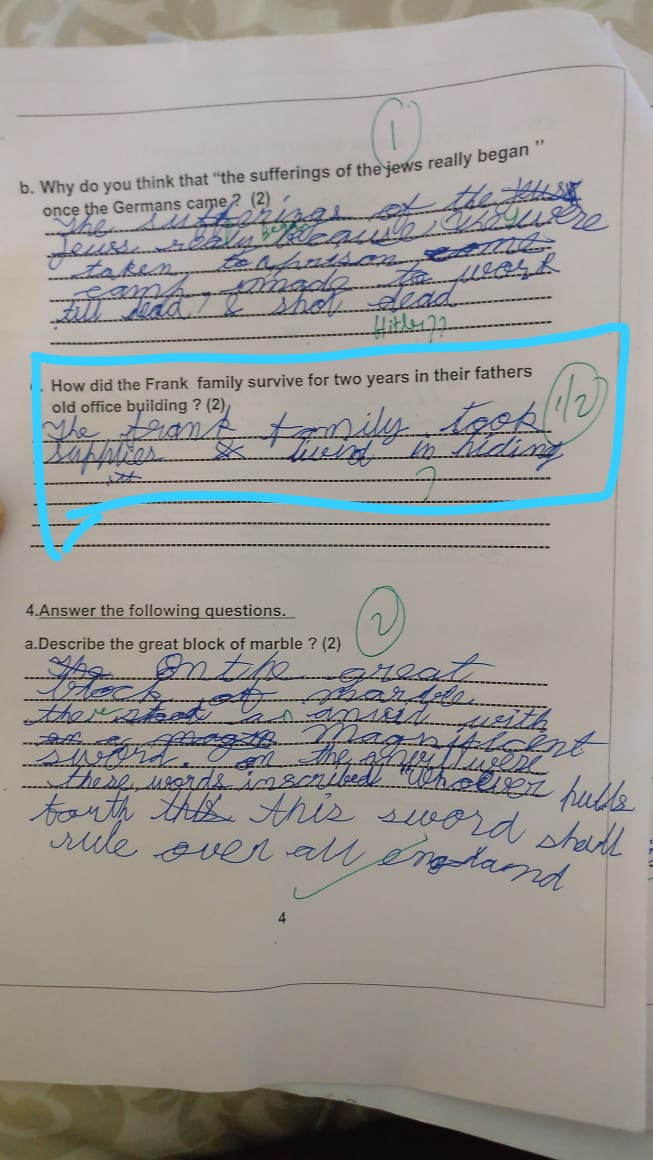 1
b. Why do you think that “the sufferings of the jews really began ”
once the Germans came ? (2)
The sufferings of the
Jews realy began because, they were
taken to a prison
camp, made to work
till dead, & shot dead
Hitler??
. How did the Frank family survive for two years in their fathers
old office building ? (2)
1/2
The frank family took
supplies & lived in hiding
?
4.Answer the following questions.
2
a.Describe the great block of marble ? (2)
The On the great
block of marble
ther stood an anvil with
magnificent
sword. on the anvil were
these words inscribed "Whoever pulls
forth this sword shall
rule over all england
4